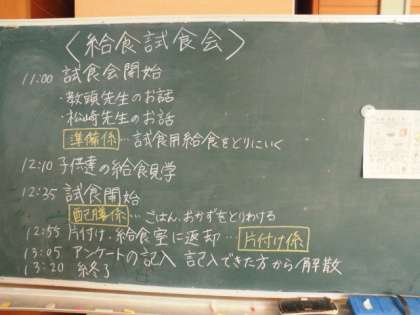 〈給食試食会〉
11:00 試食会開始
・教頭先生のお話
・松崎先生のお話
準備係…試食用給食をとりにいく
12:10 子供達の給食見学
12:35 試食開始
配膳係…ごはん、おかずをとりわける
12:55 片付け・給食室に返却…片付け係
13:05 アンケートの記入 記入できた方から解散
13:20 終了